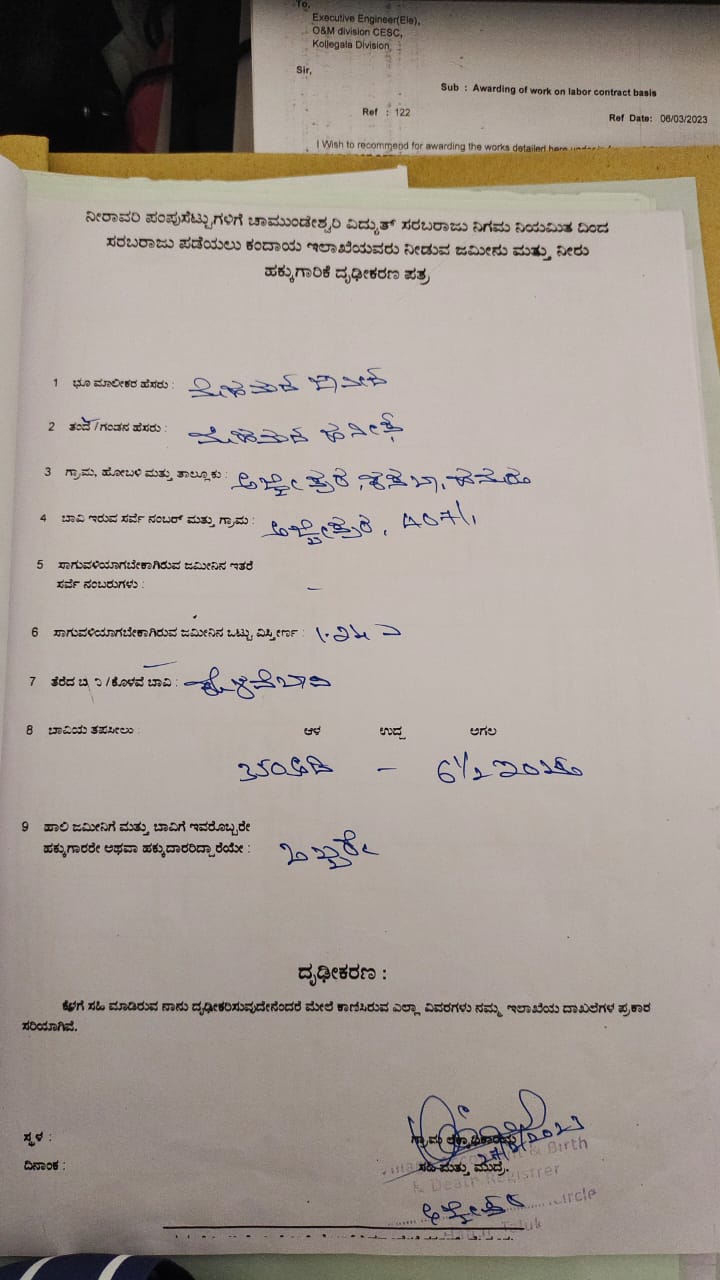 To,
Executive Engineer(Ele),
O&M division CESC,
Kollegala Division,
Sir,
Sub : Awarding of work on labor contract basis
Ref : 122
Ref Date: 06/03/2023
I Wish to recommend for awarding the works detailed here
ನೀರಾವರಿ ಪಂಪುಸೆಟ್ಟುಗಳಿಗೆ ಚಾಮುಂಡೇಶ್ವರಿ ವಿದ್ಯುತ್ ಸರಬರಾಜು ನಿಗಮ ನಿಯಮಿತ ದಿಂದ
ಸರಬರಾಜು ಪಡೆಯಲು ಕಂದಾಯ ಇಲಾಖೆಯವರು ನೀಡುವ ಜಮೀನು ಮತ್ತು ನೀರು
ಹಕ್ಕುಗಾರಿಕೆ ದೃಢೀಕರಣ ಪತ್ರ
1 ಭೂ ಮಾಲೀಕರ ಹೆಸರು : ಮೊಹಮದ್
2 ತಂದೆ/ಗಂಡನ ಹೆಸರು : ಮೊಹಮದ್ ಹನೀಫ್
3 ಗ್ರಾಮ, ಹೋಬಳಿ ಮತ್ತು ತಾಲ್ಲೂಕು : ಅಜ್ಜೀಪುರ, ಕಸಬಾ, ಹನೂರು
4 ಬಾವಿ ಇರುವ ಸರ್ವೆ ನಂಬರ್ ಮತ್ತು ಗ್ರಾಮ : ಅಜ್ಜೀಪುರ, 407/1
5 ಸಾಗುವಳಿಯಾಗಬೇಕಾಗಿರುವ ಜಮೀನಿನ ಇತರೆ
ಸರ್ವೆ ನಂಬರುಗಳು : –
6 ಸಾಗುವಳಿಯಾಗಬೇಕಾಗಿರುವ ಜಮೀನಿನ ಒಟ್ಟು ವಿಸ್ತೀರ್ಣ :
7 ತೆರೆದ ಬಾವಿ/ಕೊಳವೆ ಬಾವಿ : ಕೊಳವೆಬಾವಿ
8 ಬಾವಿಯ ತಪಸೀಲು : ಆಳ ಉದ್ದ ಅಗಲ
– 6 1/2 ಇಂಚು
9 ಹಾಲಿ ಜಮೀನಿಗೆ ಮತ್ತು ಬಾವಿಗೆ ಇವರೊಬ್ಬರೇ
ಹಕ್ಕುಗಾರರೇ ಅಥವಾ ಹಕ್ಕುದಾರರಿದ್ದಾರೆಯೇ : ಒಬ್ಬರೇ
ದೃಢೀಕರಣ :
ಕೆಳಗೆ ಸಹಿ ಮಾಡಿರುವ ನಾನು ದೃಢೀಕರಿಸುವುದೇನೆಂದರೆ ಮೇಲೆ ಕಾಣಿಸಿರುವ ಎಲ್ಲಾ ವಿವರಗಳು ನಮ್ಮ ಇಲಾಖೆಯ ದಾಖಲೆಗಳ ಪ್ರಕಾರ
ಸರಿಯಾಗಿವೆ.
ಸ್ಥಳ :
ಗ್ರಾಮ
ದಿನಾಂಕ :
ಸಹಿ ಮತ್ತು ಮುದ್ರೆ.
& Birth
& Death Registrer
Circle
ಅಜ್ಜೀಪುರ
Taluk